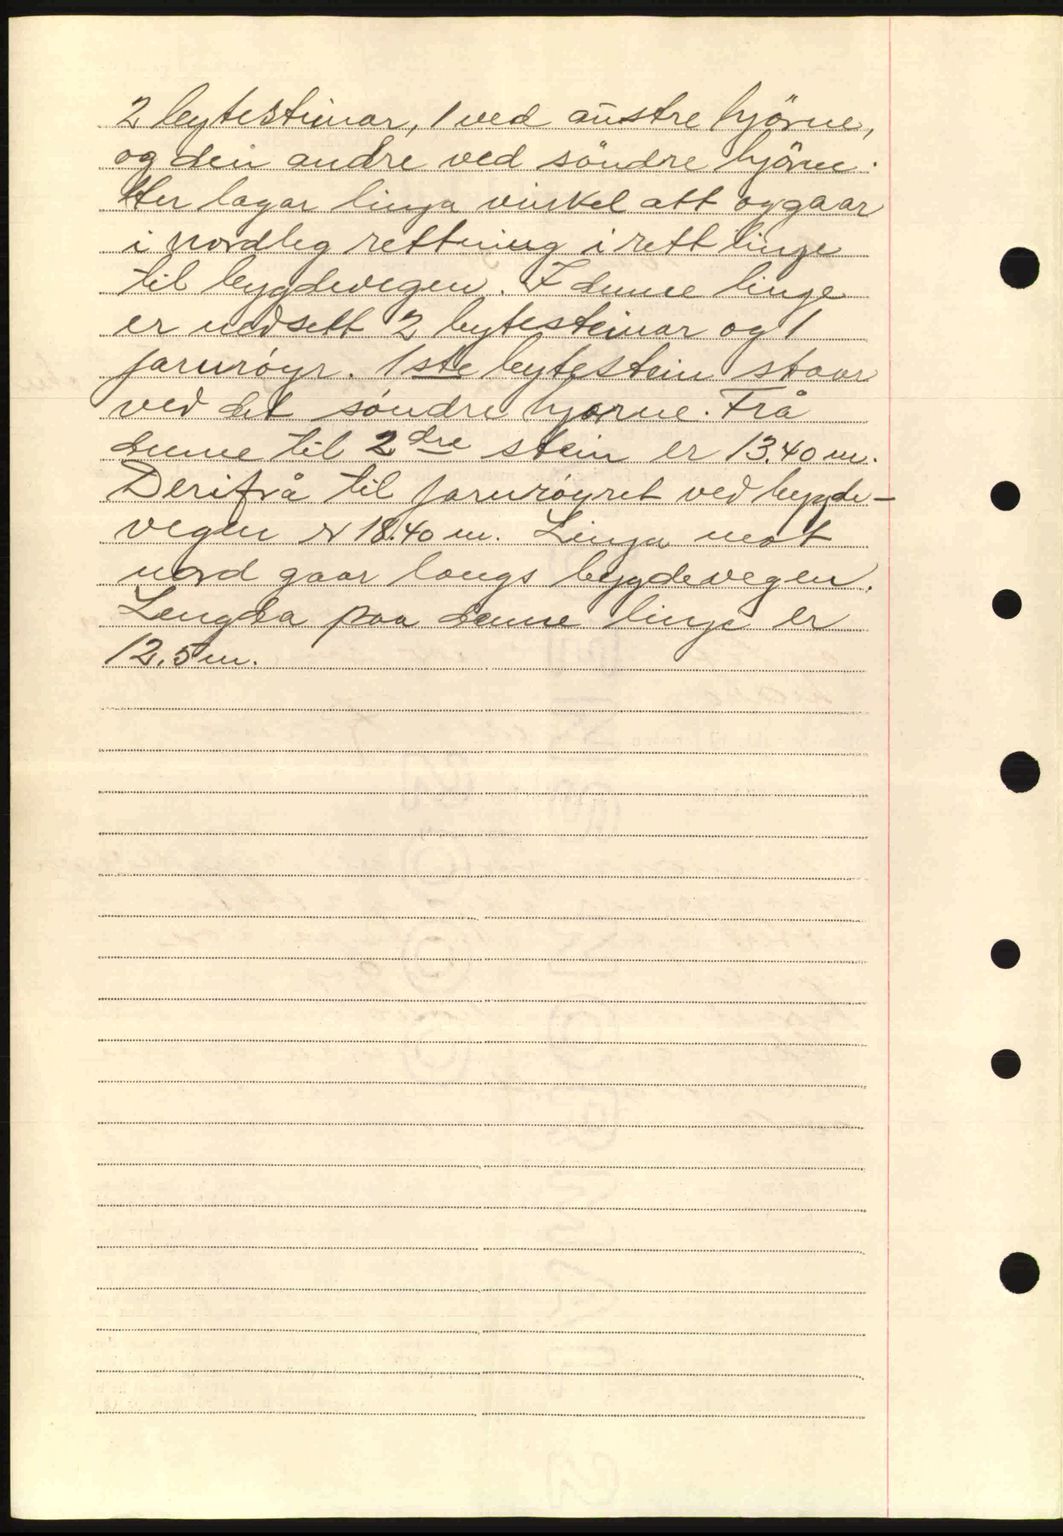 2 bytesteinar, 1 ved austre hjörne,
og den andre ved söndre hjörne.
Her lagar linja vinkel att og gaar
i nordleg rettning i rett linje
til bygdevegen. I denne linje
er nedsett 2 bytesteinar og 1
jarnröyr. 1ste bytestein staar
ved det söndre hjörne. Frå
denne til 2dre stein er 13.40 m.
Derifrå til jarnröyret ved bygde-
vegen er 18.40 m. Linja mot
nord gaar langs bygdevegen.
Lengda paa denne linje er
12.5 m.